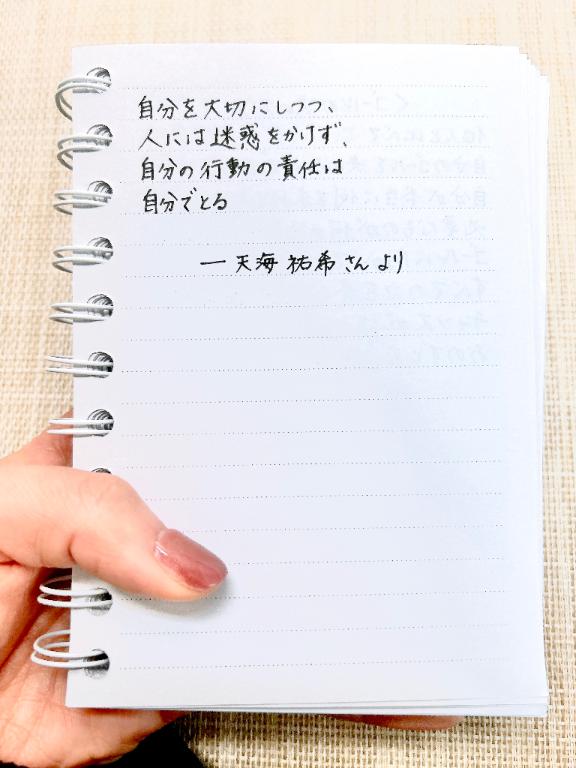 自分を大切にしつつ、
人には迷惑をかけず、
自分の行動の責任は
自分でとる
— 天海祐希さんより